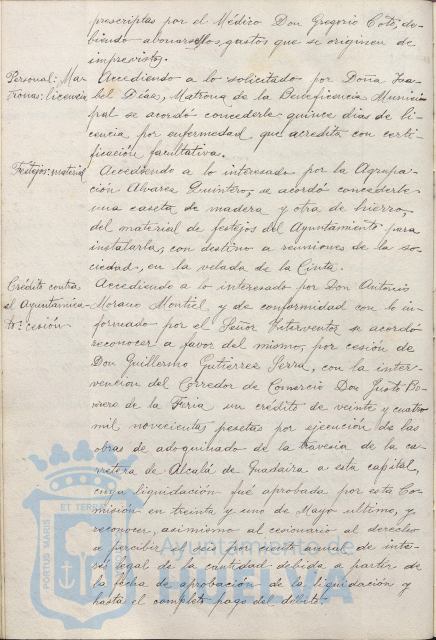 prescriptas por el Médico Don Gregorio Coté, de-
biendo abonarse los gastos que se originen de
imprevistos.
Personal: Ma-
tronas: licencia
Accediendo a lo solicitado por Doña Isa-
bel Díaz, Matrona de la Beneficencia Munici-
pal se acordó concederle quince días de li-
cencia por enfermedad que acredita con certi-
ficación facultativa.
Festejos: material
Accediendo a lo interesado por la Agrupa-
ción Alvarez Quintero, se acordó concederle
una caseta de madera y otra de hierro,
del material de festejos del Ayuntamiento para
instalarla, con destino a reuniones de la so-
ciedad, en la velada de la Cinta.
Crédito contra
el Ayuntamien-
to: cesión
Accediendo a lo interesado por Don Antonio
Morano Montiel y de conformidad con lo in-
formado por el Señor Interventor se acordó
reconocer a favor del mismo, por cesión de
Don Guillermo Gutierrez Serra, con la inter-
vención del Corredor de Comercio Don Justo Bo-
rrero de la Feria un crédito de veinte y cuatro
mil novecientas pesetas por ejecución de las
obras de adoquinado de la travesia de la ca-
rretera de Alcalá de Guadaira a esta capital,
cuya liquidación fué aprobada por esta Co-
misión en treinta y uno de Mayo ultimo, y
reconocer, asimismo al cesionario el derecho
a percibir el seis por ciento anual de inte-
rés legal de la cantidad debida a partir de
la fecha de aprobación de la liquidación y
hasta el completo pago del débito.
PORTUS MARIS
ET TERRE
Ayuntamiento de
HUELVA